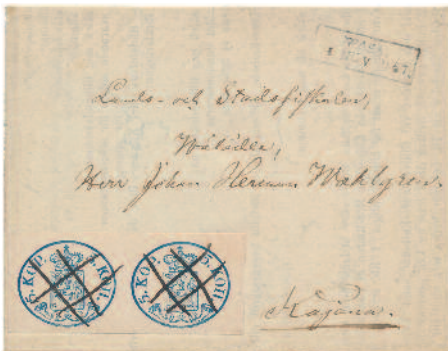 WASA
Lands- och Stadsfiskalen,
Wälädle,
Herr Johan Herman Wahlgren.
5. KOP. 5. KOП.
5. KOP. 5. KOП.
Kajana.